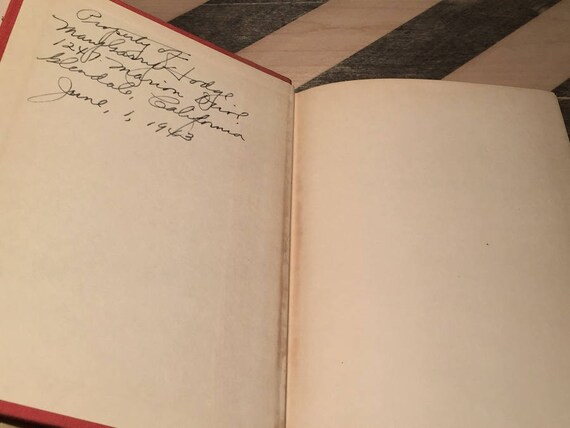 Property of:
Hodge
1247 Marion Drive
Glendale, California
June, 1, 1943